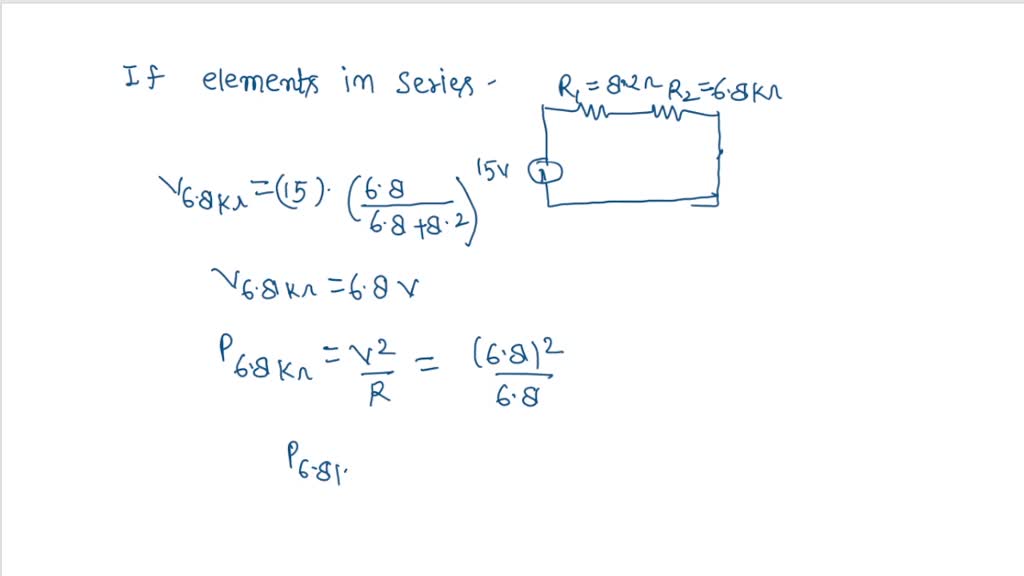 If elements in series -
R₁ = 8.2Ω R₂ = 6.8KΩ
15V
V6.8KΩ = (15). (6.8 / 6.8+8.2)
V6.8KΩ = 6.8 V
P6.8KΩ = V² / R = (6.8)² / 6.8
P6.8